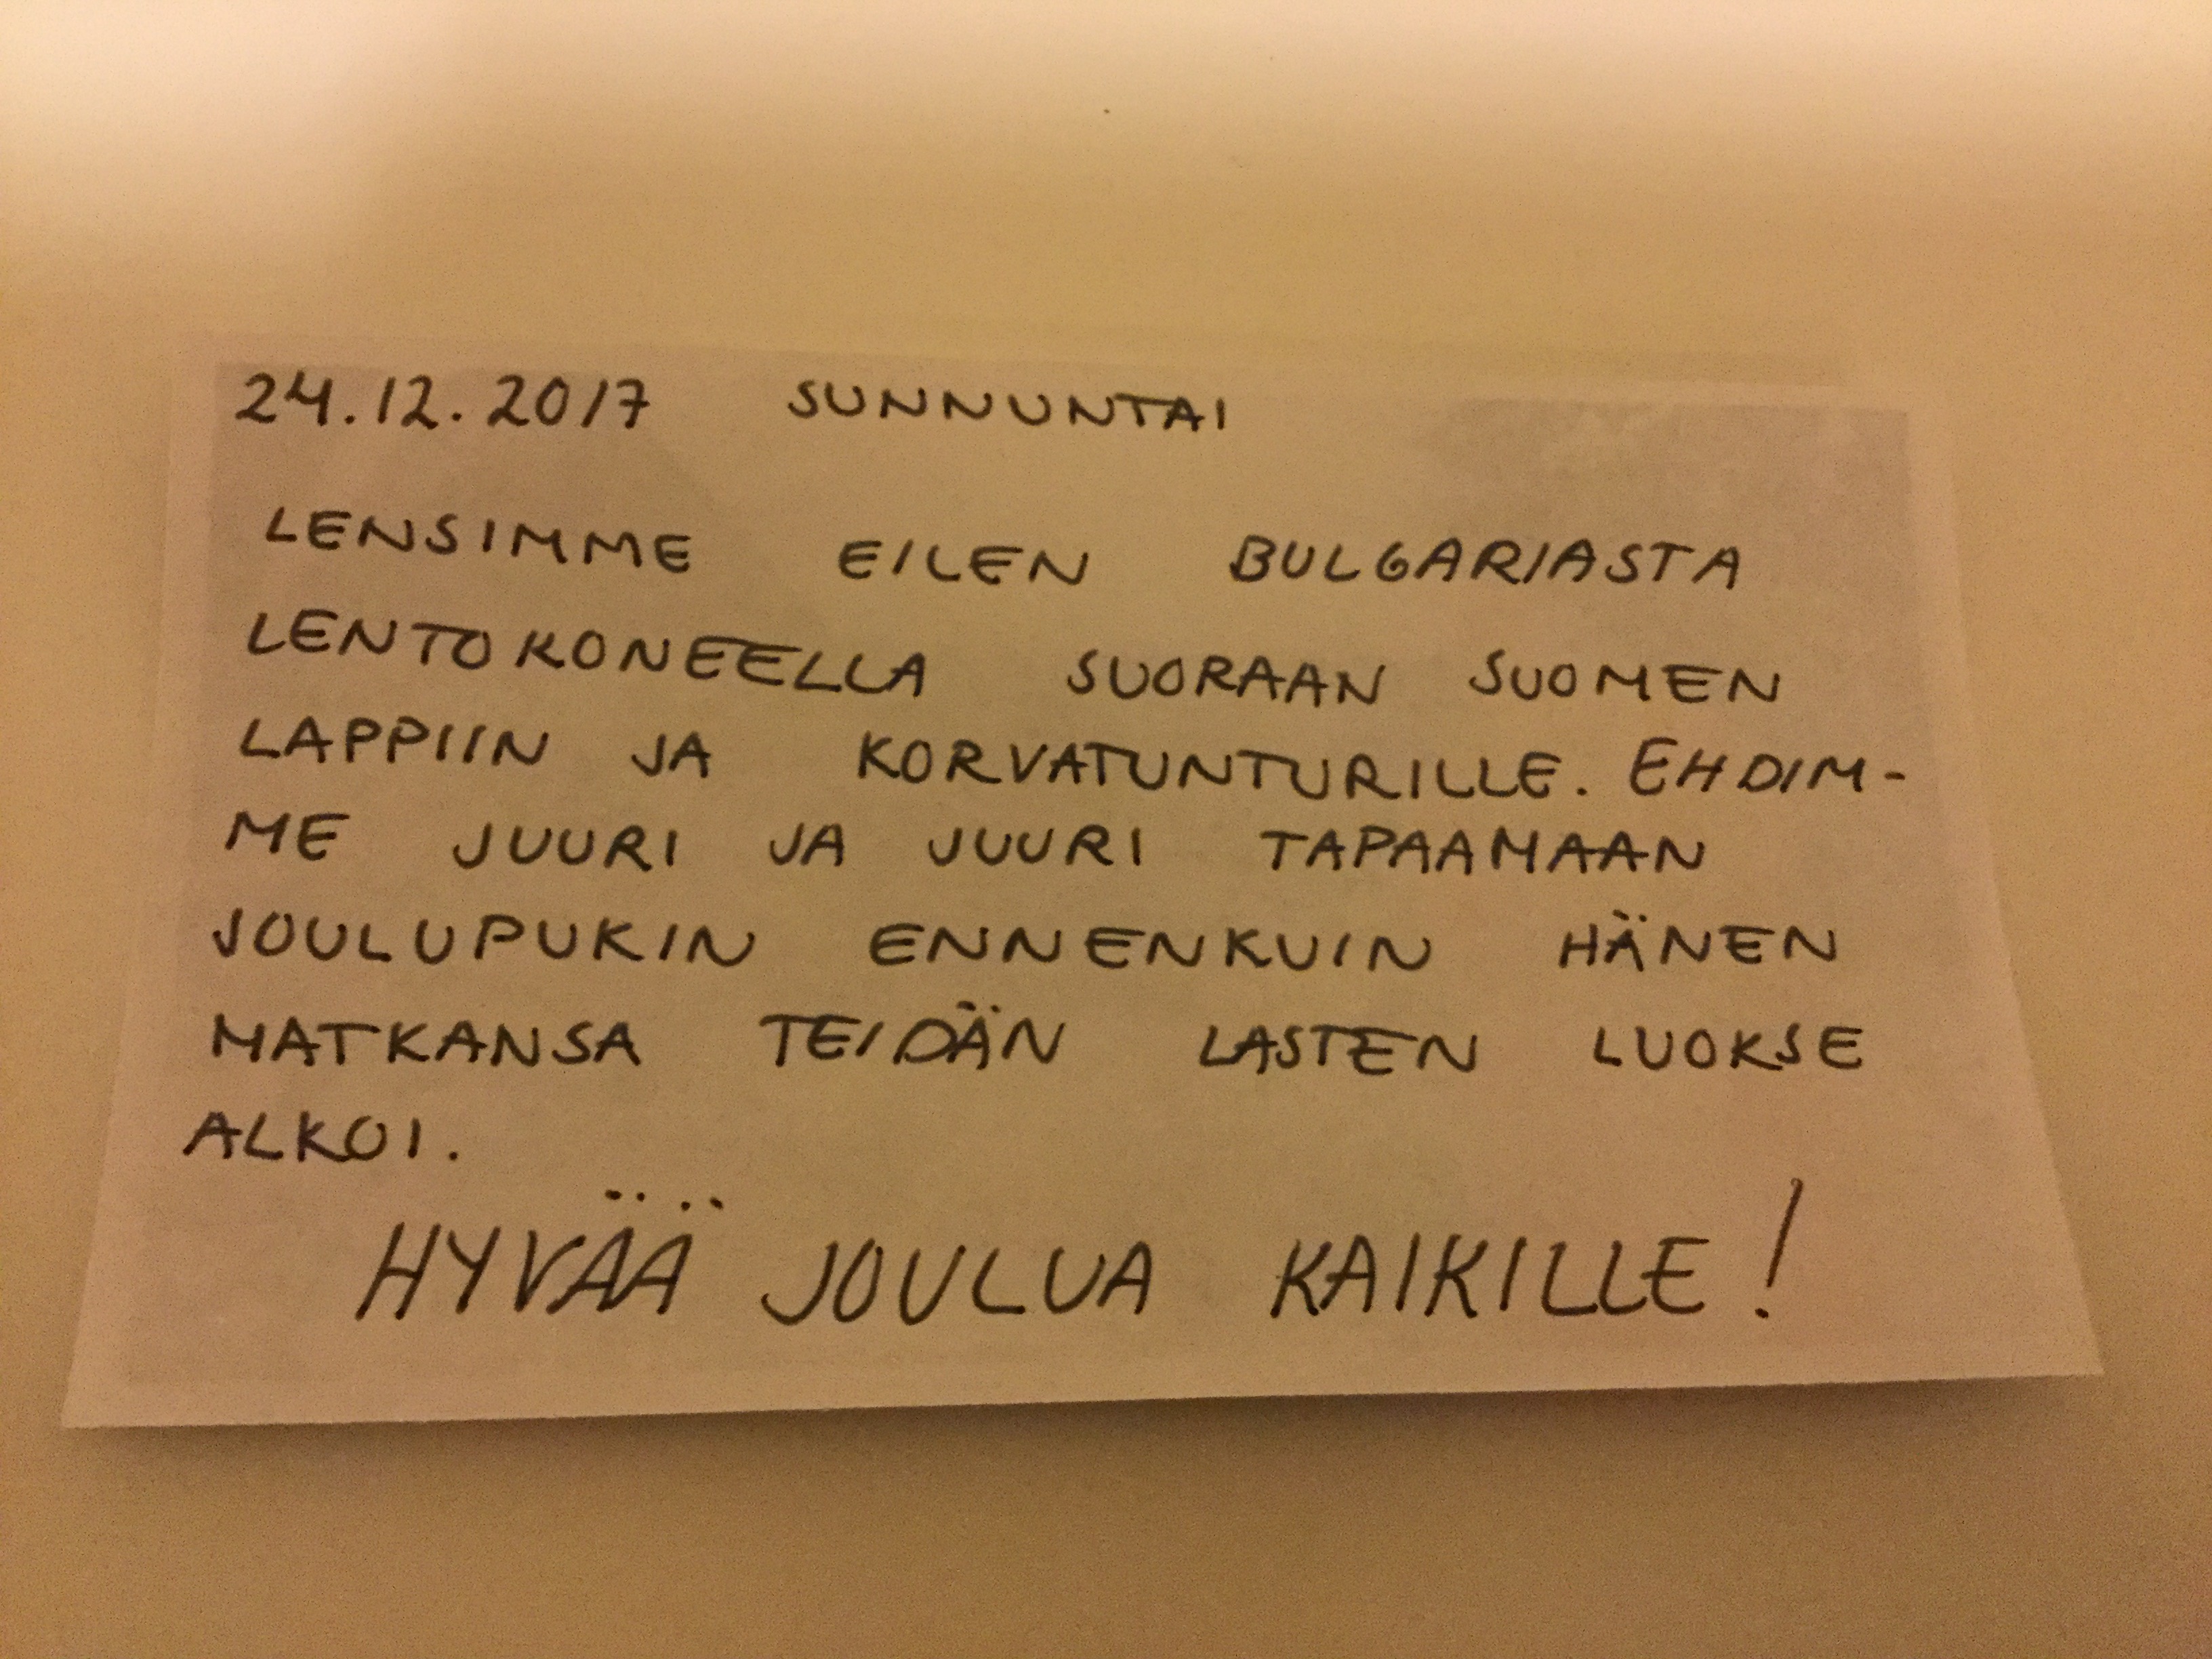 24.12.2017 SUNNUNTAI
LENSIMME EILEN BULGARIASTA
LENTOKONEELLA SUORAAN SUOMEN
LAPPIIN JA KORVATUNTURILLE. EHDIM-
ME JUURI JA JUURI TAPAAMAAN
JOULUPUKIN ENNENKUIN HÄNEN
MATKANSA TEIDÄN LASTEN LUOKSE
ALKOI.
HYVÄÄ JOULUA KAIKILLE!